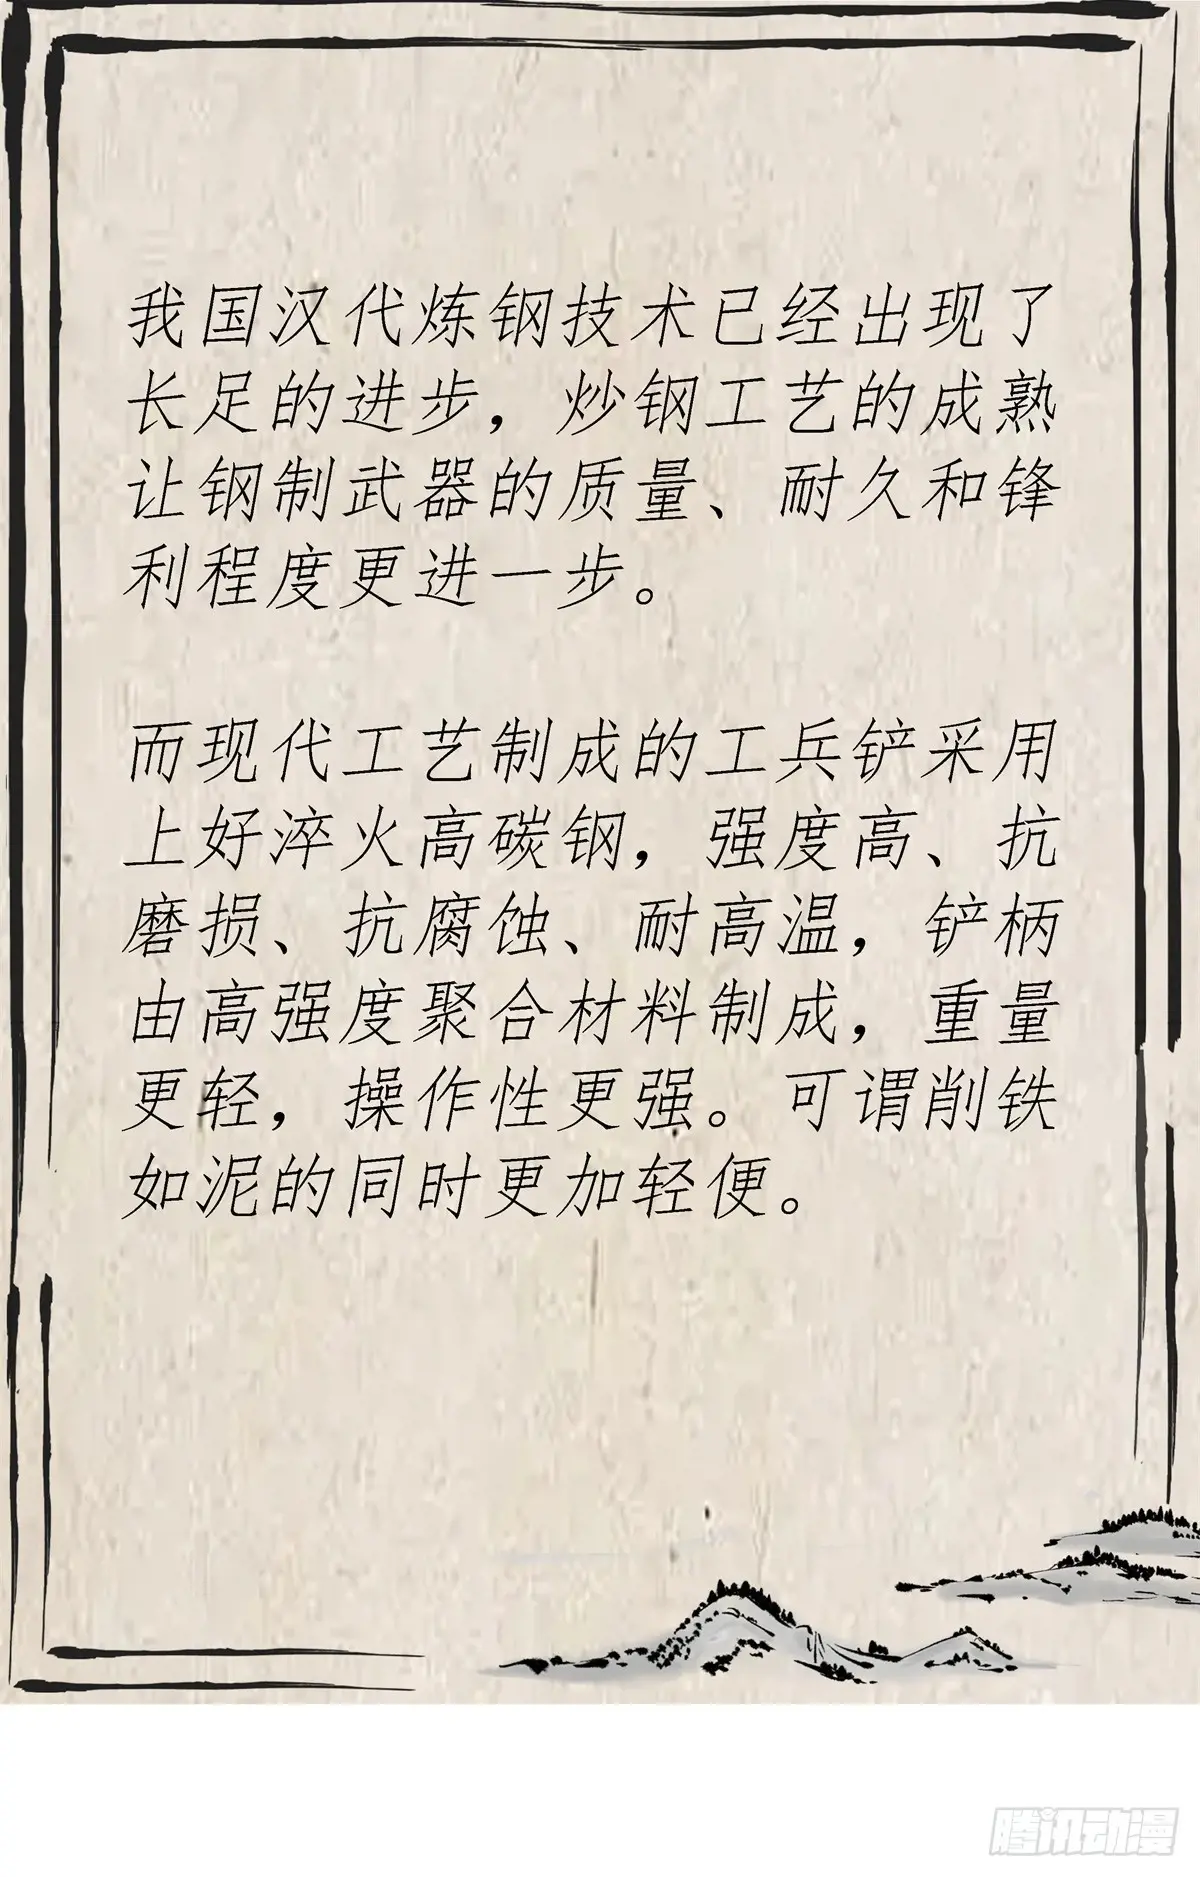 我国汉代炼钢技术已经出现了
长足的进步，炒钢工艺的成熟
让钢制武器的质量、耐久和锋
利程度更进一步。
而现代工艺制成的工兵铲采用
上好淬火高碳钢，强度高、抗
磨损、抗腐蚀、耐高温，铲柄
由高强度聚合材料制成，重量
更轻，操作性更强。可谓削铁
如泥的同时更加轻便。
腾讯动漫